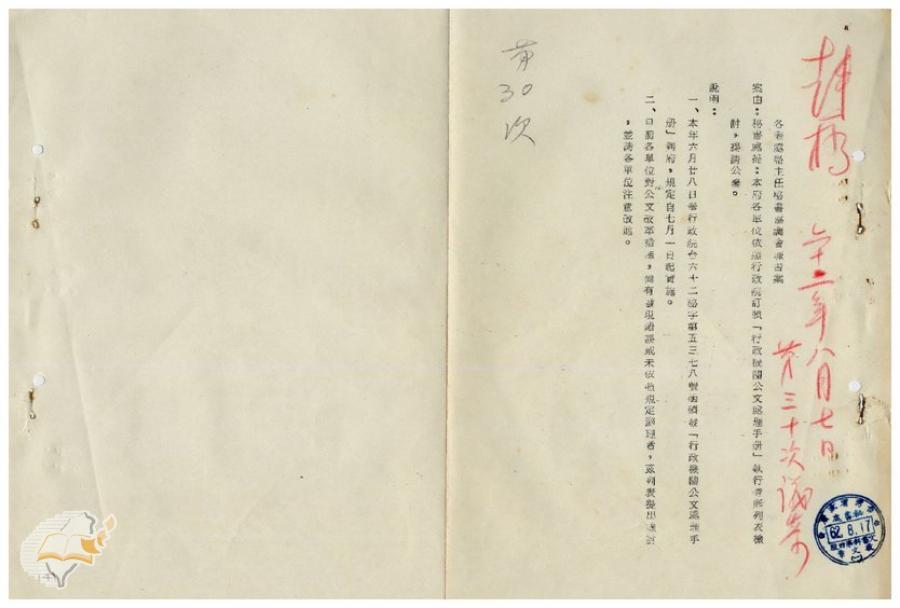 六十二年八月七日
第三十次議案
各省處局主任秘書座談會報告案
案由:秘書處提:本府各單位依照行政院訂頒「行政機關公文處理手冊」執行情形列表檢
討,提請公鑒。
說明:
一、本年六月廿八日奉行政院台六十二秘字第五三七八號函頒發「行政機關公文處理手
冊」到府,規定自七月一日起實施。
二、日前各單位對公文改革措施,尚有發現錯誤或未依照規定辦理者,茲列表提出檢討
,並請各單位注意改進。
第30次
秘書處
62.8.17